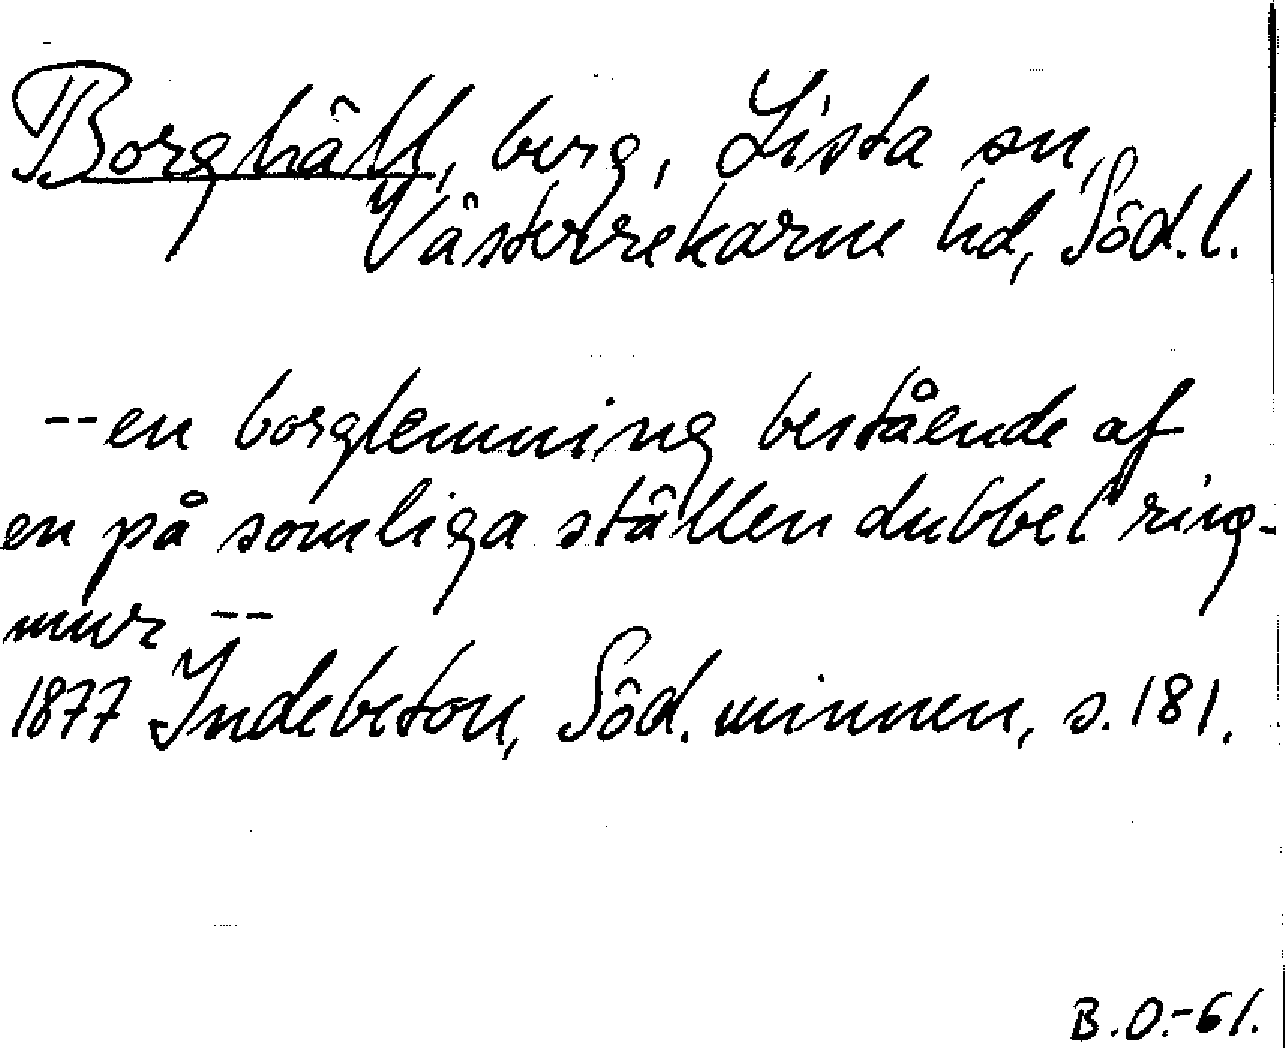 Borghäll, berg, Lista sn,
Västerrekarne hd, Söd.l.
--en borglemning bestående af
en på somliga ställen dubbel ring-
mur --
1877 Indebetou, Söd. minnen, s. 181.
B.O.-61.